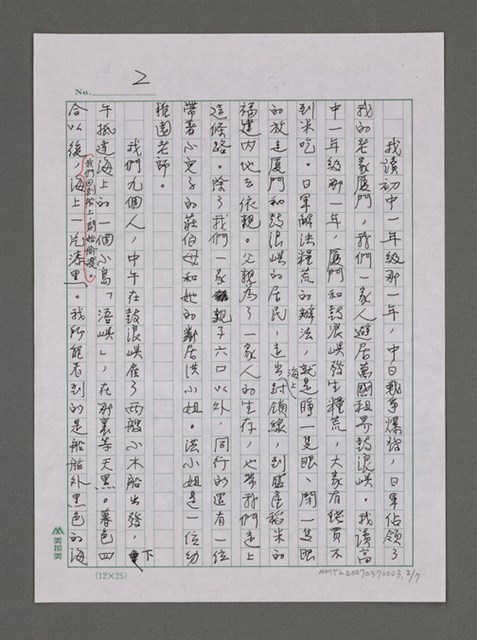 No. 2
我讀初中一年級那一年，中日戰爭爆發，日軍佔領了
我的老家廈門，我們一家人避居萬國租界鼓浪嶼。我讀高
中一年級那一年，廈門和鼓浪嶼發生糧荒，大家有錢買不
到米吃。日軍解決糧荒的辦法，就是睜一隻眼、閉一隻眼
的放走廈門和鼓浪嶼的居民，走出海上封鎖線，到盛產稻米的
福建內地去依親。父親為了一家人的生存，也帶我們走上
這條路。除了我們一家親子六口以外，同行的還有一位
帶著小兒子的莊伯母和她的鄰居洪小姐。洪小姐是一位幼
稚園老師。
我們九個人，中午在鼓浪嶼雇了兩艘小木船出發，下
午抵達海上的一個小島「浯嶼」，在那裏等天黑。暮色四
合以後，我們回到船上，開始偷渡。海上一片漆黑。我所能看到的是船舷外黑色的海
美加美
(12×25)
NMTL20070570003, 2/7